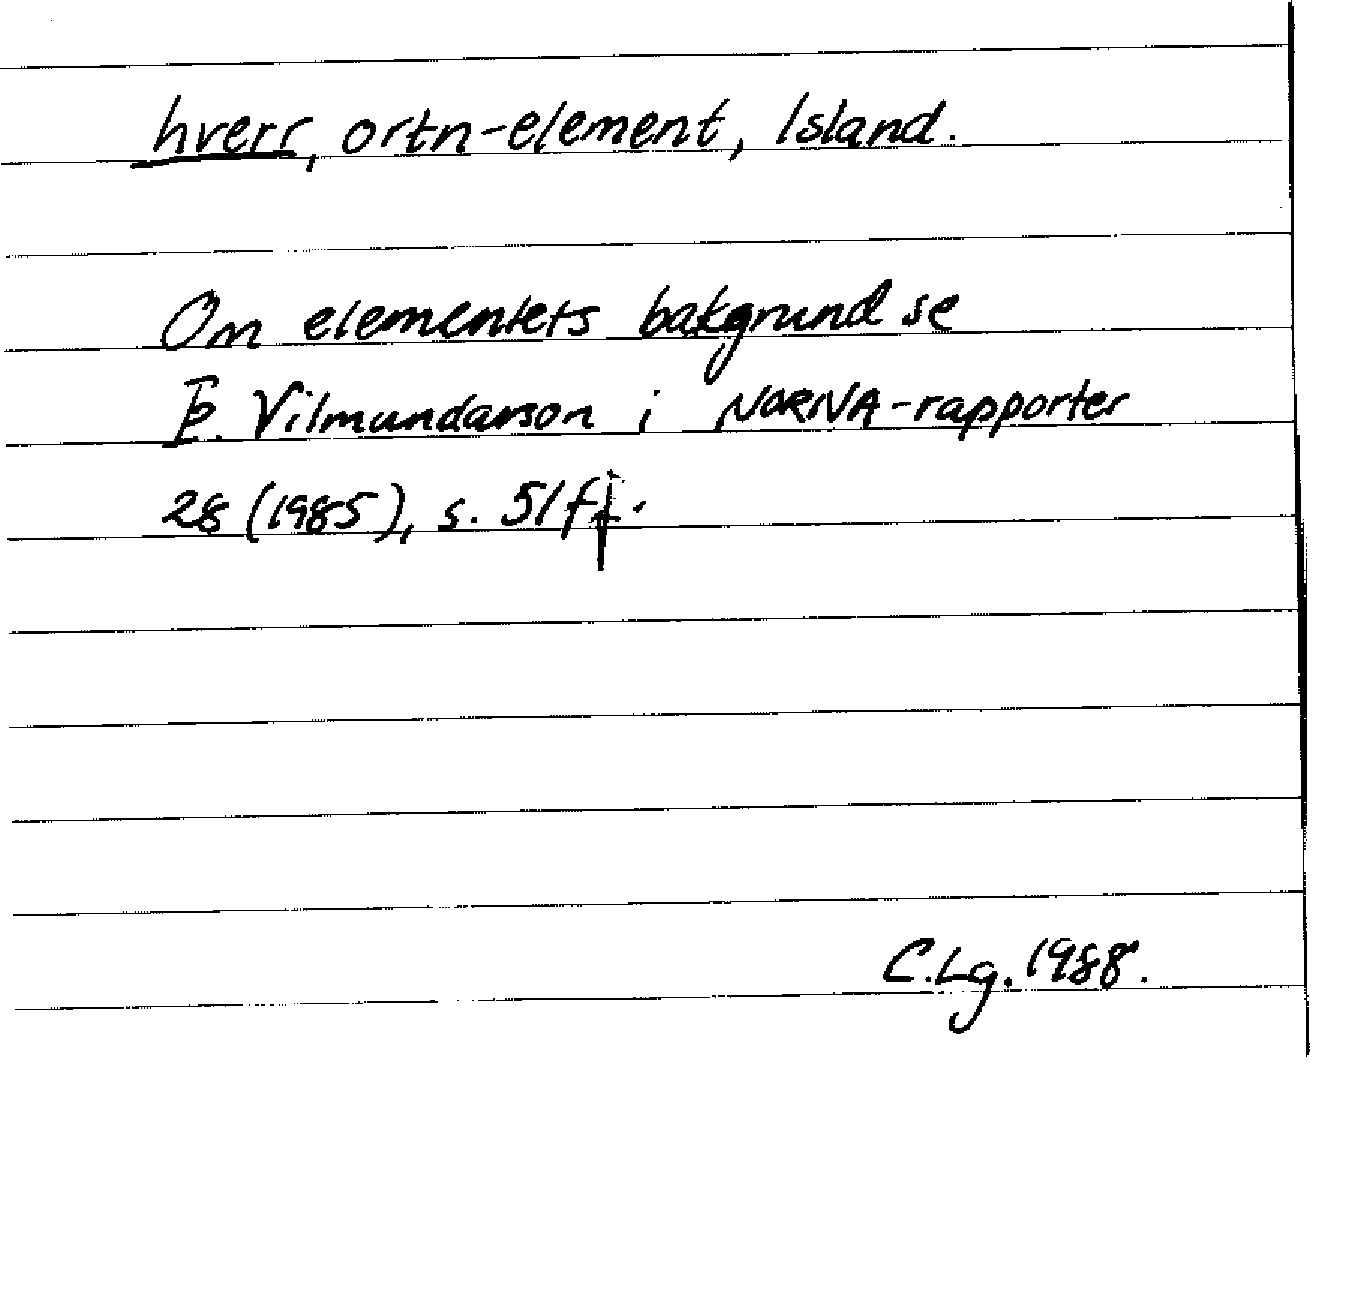 hverr, ortn-element, Island.
Om elementets bakgrund se
Þ. Vilmundarson i NORNA-rapporter
28 (1985), s. 51ff.
C.Lg. 1988.